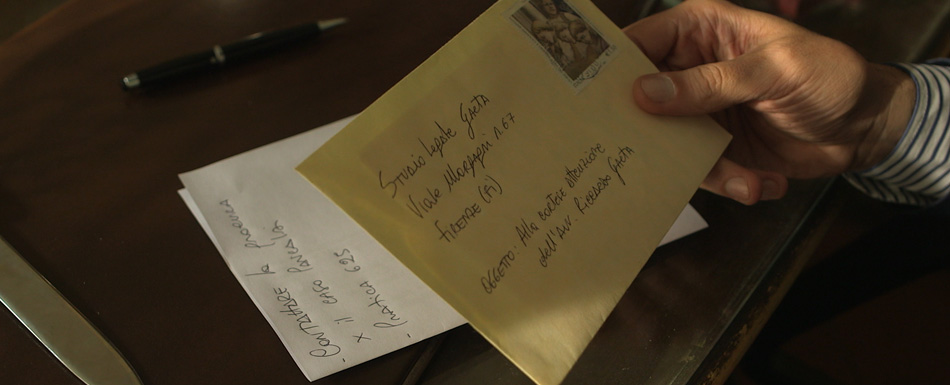 Studio legale Gaeta
Viale Morgagni n.67
FIRENZE (FI)
OGGETTO: Alla cortese attenzione
dell'Avv. Riccardo Gaeta
- CONTATTARE la Procura
x il caso
- Pratica 625